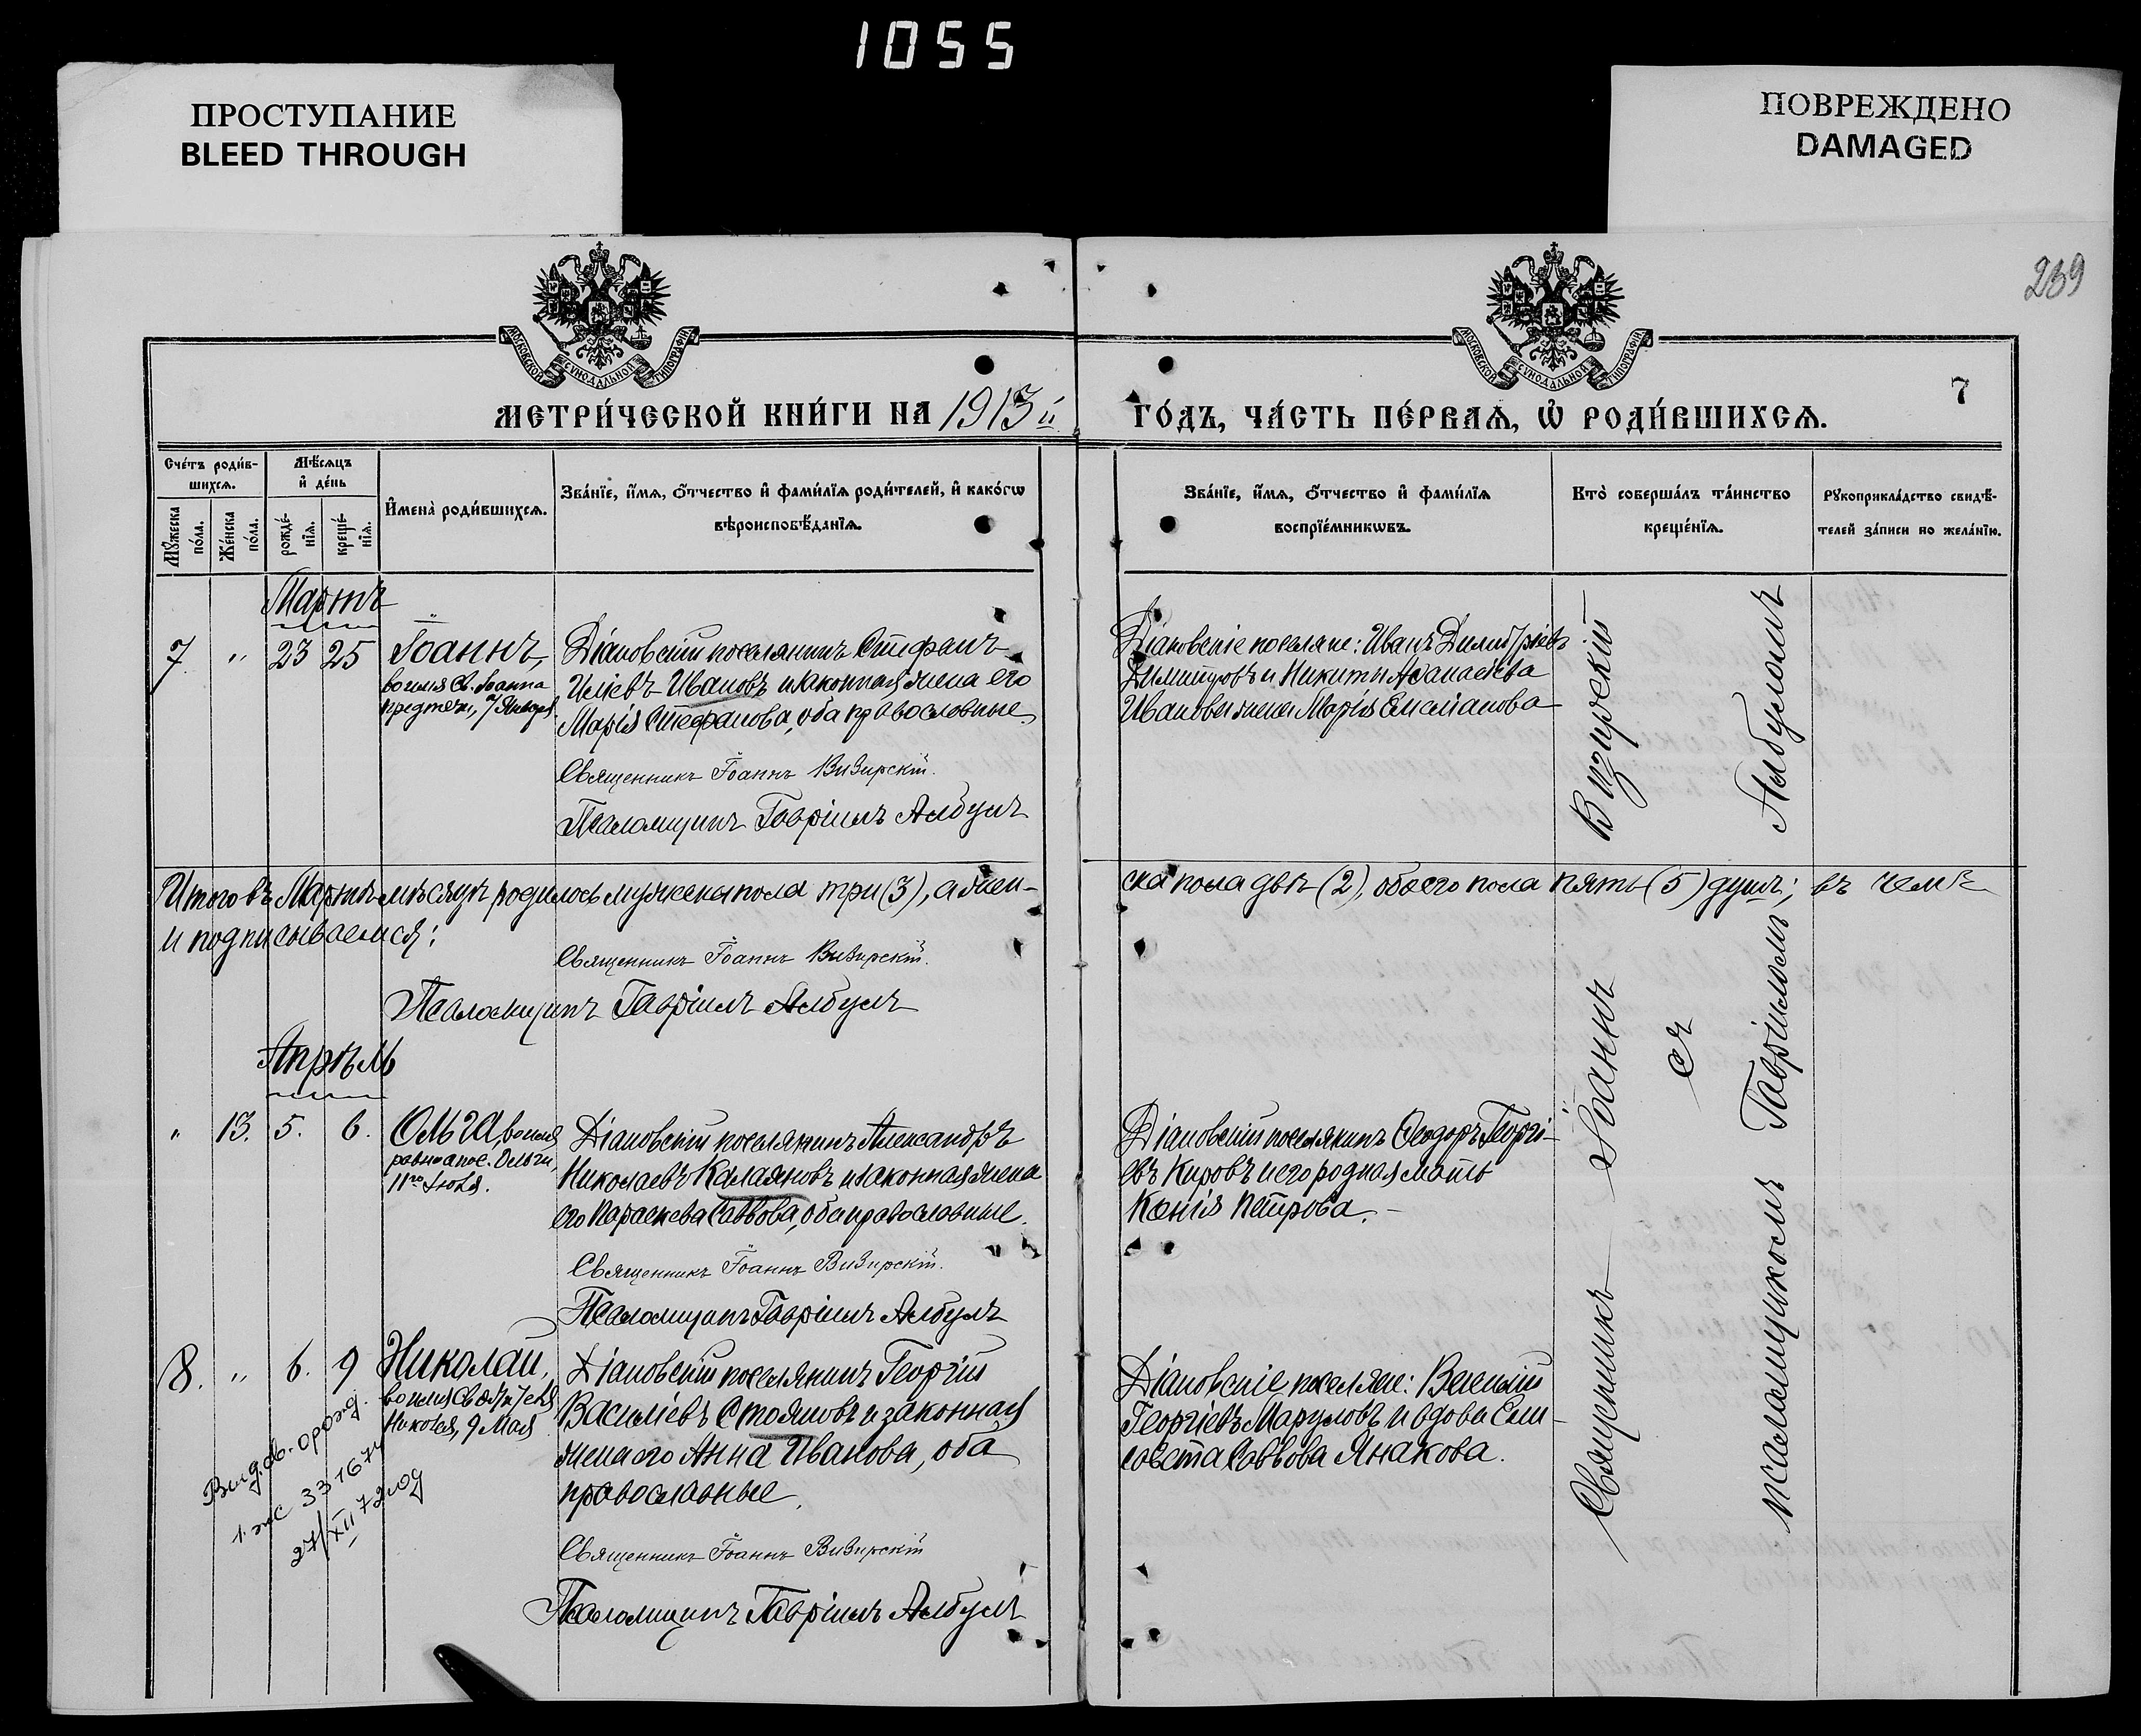 1055
ПРОСТУПАНИЕ
BLEED THROUGH
ПОВРЕЖДЕНО
DAMAGED
239
МОСКОВСКОЙ СѴНОДАЛЬНОЙ ТИПОГРАФІИ
МОСКОВСКОЙ СѴНОДАЛЬНОЙ ТИПОГРАФІИ
7
МЕТРИ́ЧЕСКОЙ КНИ́ГИ НА 1913й
ГО́ДЪ, ЧА́СТЬ ПЕ́РВАѦ, Ѡ҆ РОДИ́ВШИХСѦ.
Сче́тъ роди́в-
шихсѧ.
Мѣ́сѧцъ
и҆ де́нь
Мꙋ́жеска
по́ла.
Же́нска
по́ла.
рожде́-
нїѧ.
креще́-
нїѧ.
И҆мена̀ роди́вшихсѧ.
Зва́нїе, и҆́мѧ, ѻ҆́тчество и҆ фами́лїѧ роди́телей, и҆ како́гѡ
вѣроисповѣ́данїѧ.
Зва́нїе, и҆́мѧ, ѻ҆́тчество и҆ фами́лїѧ
воспрїе́мникѡвъ.
Кто̀ соверша́лъ та́инство
креще́нїѧ.
Рꙋкоприкла́дство свидѣ́-
телей за́писи по жела́нїю.
Мартъ
7. " 23 25 Іоаннъ,
во имя Св. Іоанна
предтечи, 7 Января.
Діановскій поселянинъ Стефанъ
Иліевъ Ивановъ и законная жена его
Марія Стефанова, оба православные.
Священникъ Іоаннъ Визирскій.
Псаломщикъ Гавріилъ Албулъ
Діановскіе поселяне: Иванъ Димитріевъ
Димитровъ и Никиты Аѳанасіева
Иванова жена Марія Емеліанова
Итого въ Мартѣ мѣсяцѣ родилось мужеска пола три (3), а жен-
ска пола двѣ (2), обоего пола пять (5) душъ; въ чемъ
и подписываемся:
Священникъ Іоаннъ Визирскій.
Псаломщикъ Гавріилъ Албулъ
Апрѣль
" 13. 5. 6. Ольга, во имя
равноапос. Ольги,
11го Іюля.
Діановскій поселянинъ Александръ
Николаевъ Калаяновъ и законная жена
его Параскева Саввова, оба православные.
Священникъ Іоаннъ Визирскій.
Псаломщикъ Гавріилъ Албулъ
Діановскій поселянинъ Ѳеодоръ Георгі-
евъ Кировъ и его родная мать
Ксенія Петрова.
8. " 6. 9 Николай,
во имя Святителя
Николая, 9 Мая
Діановскій поселянинъ Георгій
Василіевъ Стояновъ и законная
жена его Анна Иванова, оба
православные.
Священникъ Іоаннъ Визирскій
Псаломщикъ Гавріилъ Албулъ
Діановскіе поселяне: Василій
Георгіевъ Маруловъ и вдова Ели-
савета Саввова Янакова.
Священникъ Іоаннъ Визирскій
съ
псаломщикомъ Гавріиломъ Албуломъ
Выд. св. о рожд.
1. жс 331674
27/XII 72 год